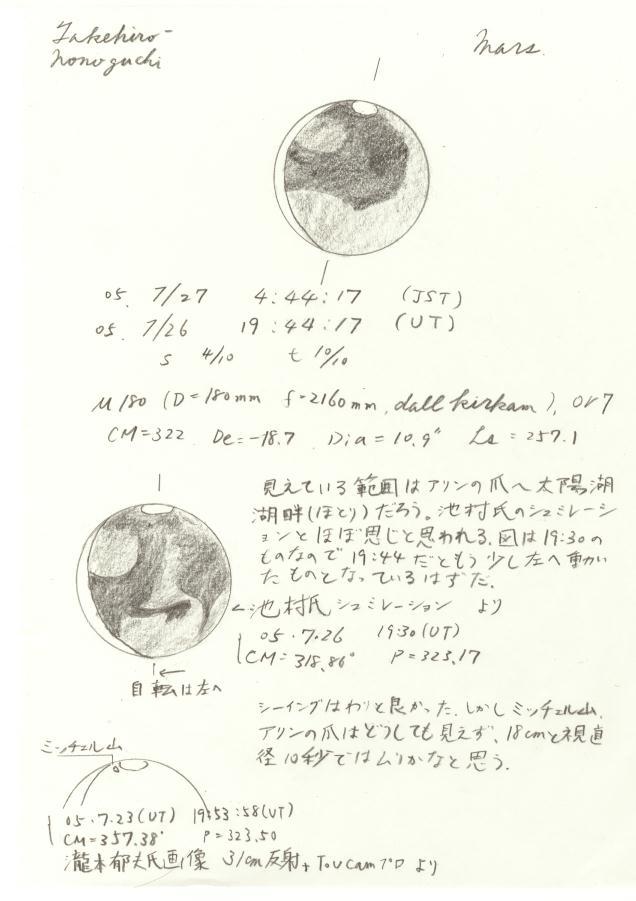 Takehiro-
Nonoguchi
Mars.
05. 7/27 4:44:17 (JST)
05. 7/26 19:44:17 (UT)
s 4/10 t 10/10
μ180 (D=180mm f=2160mm, dall kirkam), Or7
CM=322 De=-18.7 Dia=10.9" Ls=257.1
見えている範囲はアリンの爪へ太陽湖
湖畔(ほとり)だろう。池村氏のシュミレーシ
ョンとほぼ思じと思われる。図は19:30の
ものなので19:44だともう少し左へ動い
たものとなっているはずだ.
←池村氏シュミレーション より
05.7.26 19:30(UT)
CM=318.86° P=323.17
自転は左へ
シーイングはわりと良かった.しかしミッチェル山,
アリンの爪はどうしても見えず、18cmと視直
径10秒ではムリかなと思う.
ミッチェル山
05.7.23(UT) 19:53:58(UT)
CM=357.38° P=323.50
瀧本郁夫氏画像 31cm反射+ToUcamプロ より